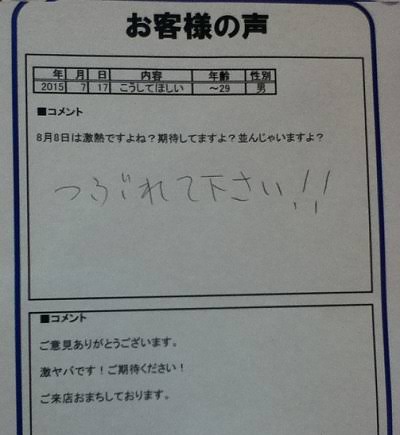 お客様の声
年 月 日 内容 年齢 性別
2015 7 17 こうしてほしい ～29 男
■コメント
8月8日は激熱ですよね？期待してますよ？並んじゃいますよ？
つぶれて下さい!!
■コメント
ご意見ありがとうございます。
激ヤバです！ご期待ください！
ご来店おまちしております。